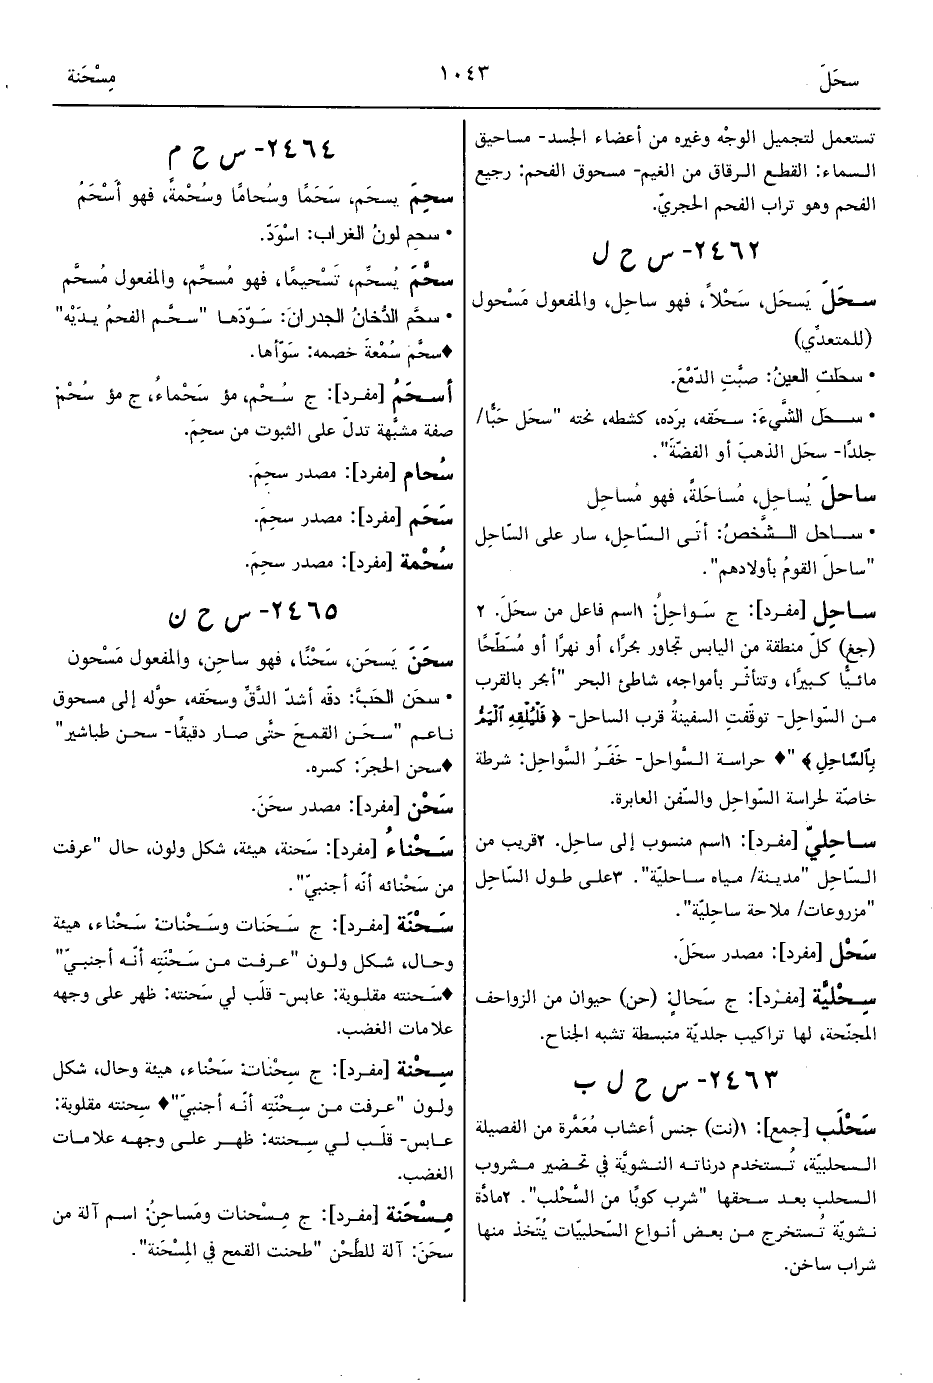 سحَلَ
١٠٤٣
مِسْحَنة
تستعمل لتجميل الوجْه وغيره من أعضاء الجسد- مساحيق
السماء: القطع الرقاق من الغيم- مسحوق الفحم: رجيع
الفحم وهو تراب الفحم الحجريّ.
٢٤٦٢- س ح ل
سحَلَ يَسحَل، سَحْلاً، فهو ساحِل، والمفعول مَسْحول
(للمتعدِّي)
• سحلتِ العينُ: صبَّتِ الدّمْعَ.
• سحَل الشَّيءَ: سحَقه، برَده، كشطه، نحته "سحَل حَبًّا/
جلدًا- سحَل الذهبَ أو الفضّةَ".
ساحلَ يُساحِل، مُساحَلةً، فهو مُساحِل
• ساحل الشَّخصُ: أتَى السّاحِل، سار على السّاحِل
"ساحلَ القومُ بأولادهم".
ساحِل [مفرد]: ج سَواحِلُ: ١اسم فاعل من سحَلَ. ٢
(جغ) كلّ منطقة من اليابس تجاور بحرًا، أو نهرًا أو مُسَطّحًا
مائيًّا كبيرًا، وتتأثّر بأمواجه، شاطئ البحر "أبحر بالقرب
من السّواحِل- توقّفتِ السفينةُ قرب الساحل- ﴿ فَلْيُلْقِهِ الْيَمُّ
بِالسَّاحِلِ ﴾ "♦ حراسة السّواحل- خَفَرُ السَّواحِل: شرطة
خاصّة لحراسة السّواحِل والسّفن العابرة.
ساحِليّ [مفرد]: ١اسم منسوب إلى ساحِل. ٢قريب من
السّاحِل "مدينة/ مياه ساحليّة". ٣على طول السّاحِل
"مزروعات/ ملاحة ساحِليّة".
سَحْل [مفرد]: مصدر سحَلَ.
سِحْلِيَّة [مفرد]: ج سَحالٍ: (حن) حيوان من الزواحف
المجنّحة، لها تراكيب جلديّة منبسطة تشبه الجناح.
٢٤٦٣- س ح ل ب
سَحْلَب [جمع]: ١(نت) جنس أعشاب مُعَمَّرة من الفصيلة
السحلبيّة، تُستخدم درناته النشويَّة في تحضير مشروب
السحلب بعد سحقها "شرِب كوبًا من السَّحْلب". ٢مادَّة
نشويّة تُستخرج من بعض أنواع السّحلبيّات يُتّخذ منها
شراب ساخن.
٢٤٦٤- س ح م
سحِمَ يسحَم، سَحَمًا وسُحامًا وسُحْمةً، فهو أَسْحَمُ
• سحِم لونُ الغراب: اسْوَدّ.
سحَّمَ يُسحِّم، تَسْحيمًا، فهو مُسحِّم، والمفعول مُسحَّم
• سحَّم الدُّخانُ الجدرانَ: سَوّدَها "سحَّم الفحمُ يدَيْه"
♦سحَّم سُمْعةَ خصمه: سَوّأها.
أسحَمُ [مفرد]: ج سُحْم، مؤ سَحْماءُ، ج مؤ سُحْمٌ:
صفة مشبَّهة تدلّ على الثبوت من سحِمَ.
سُحام [مفرد]: مصدر سحِمَ.
سَحَم [مفرد]: مصدر سحِمَ.
سُحْمة [مفرد]: مصدر سحِمَ.
٢٤٦٥- س ح ن
سحَنَ يَسحَن، سَحْنًا، فهو ساحِن، والمفعول مَسْحون
• سحَن الحَبَّ: دقّه أشدّ الدَّقِّ وسحَقه، حوَّله إلى مسحوق
ناعم "سحَن القمحَ حتَّى صار دقيقًا- سحن طباشير"
♦سحن الحجرَ: كسره.
سَحْن [مفرد]: مصدر سحَنَ.
سَحْناءُ [مفرد]: سَحنة، هيئة، شكل ولون، حال "عرفت
من سَحْنائه أنّه أجنبيّ".
سَحْنَة [مفرد]: ج سَحَنات وسَحْنات: سَحْناء، هيئة
وحال، شكل ولون "عرفت من سَحْنَتِه أنّه أجنبيّ"
♦سَحنته مقلوبة: عابس- قلَب لي سَحنته: ظهر على وجهه
علامات الغضب.
سِحْنة [مفرد]: ج سِحْنات: سَحْناء، هيئة وحال، شكل
ولون "عرفت من سِحْنَتِه أنّه أجنبيّ"♦ سِحنته مقلوبة:
عابس- قلَب لي سِحنته: ظهر على وجهه علامات
الغضب.
مِسْحَنة [مفرد]: ج مِسْحنات ومَساحِنُ: اسم آلة من
سحَنَ: آلة للطَّحْن "طحنت القمح في المِسْحَنة".